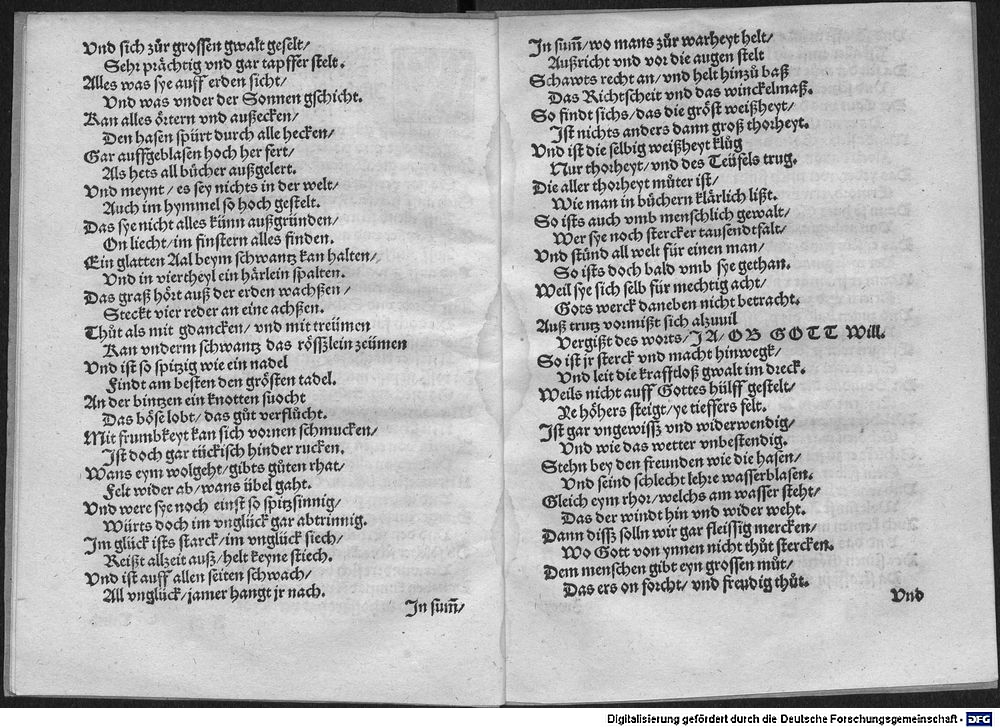 Vnd sich zůr grossen gwalt geselt/
Sehr prächtig vnd gar tapffer stelt.
Alles was sye auff erden sicht/
Vnd was vnder der Sonnen gschicht.
Kan alles örtern vnd außecken/
Den hasen spürt durch alle hecken/
Gar auffgeblasen hoch her fert/
Als hets all bücher außgelert.
Vnd meynt/ es sey nichts in der welt/
Auch im hymmel so hoch gestelt.
Das sye nicht alles künn außgründen/
On liecht/ im finstern alles finden.
Ein glatten Aal beym schwantz kan halten/
Vnd in viertheyl ein härlein spalten.
Das graß hört auß der erden wachßen/
Steckt vier reder an eine achßen.
Thůt als mit gdancken/ vnd mit treümen
Kan vnderm schwantz das rösszlein zeümen
Vnd ist so spitzig wie ein nadel
Findt am besten den grösten tadel.
An der bintzen ein knotten suocht
Das böse lobt/ das gůt verflůcht.
Mit frumbkeyt kan sich vornen schmucken/
Ist doch gar tückisch hinder rucken.
Wans eym wolgeht/ gibts gůten rhat/
Felt wider ab/ wans übel gaht.
Vnd were sye noch einst so spitzsinnig/
Würts doch im vnglück gar abtrinnig.
Im glück ists starck/ im vnglück siech/
Reißt allzeit auß/ helt keyne stiech.
Vnd ist auff allen seiten schwach/
All vnglück/ jamer hangt jr nach.
In sum̃/
In sum̃/ wo mans zůr warheyt helt/
Außricht vnd vor die augen stelt
Schawts recht an/ vnd helt hinzů baß
Das Richtscheit vnd das winckelmaß.
So findt sichs/ das die gröst weißheyt/
Ist nichts anders dann groß thorheyt.
Vnd ist die selbig weißheyt klůg
Nur thorheyt/ vnd des Teüfels trug.
Die aller thorheyt můter ist/
Wie man in büchern klärlich lißt.
So ists auch vmb menschlich gewalt/
Wer sye noch stercker tausendtfalt/
Vnd stünd all welt für einen man/
So ists doch bald vmb sye gethan.
Weil sye sich selb für mechtig acht/
Gots werck daneben nicht betracht.
Auß trutz vormißt sich alzuuil
Vergißt des worts/ JA/ OB GOTT Will.
So ist jr sterck vnd macht hinwegk/
Vnd leit die krafftloß gwalt im dreck.
Weils nicht auff Gottes hülff gestelt/
Ye höhers steigt/ ye tieffers felt.
Ist gar vngewissz vnd widerwendig/
Vnd wie das wetter vnbestendig.
Stehn bey den freunden wie die hasen/
Vnd seind schlecht lehre wasserblasen.
Gleich eym rhor/ welchs am wasser steht/
Das der windt hin vnd wider weht.
Dann dissz solln wir gar fleissig mercken/
Wo Gott von ynnen nicht thůt stercken.
Dem menschen gibt eyn grossen můt/
Das ers on forcht/ vnd freudig thůt.
Vnd
Digitalisierung gefördert durch die Deutsche Forschungsgemeinschaft - DFG